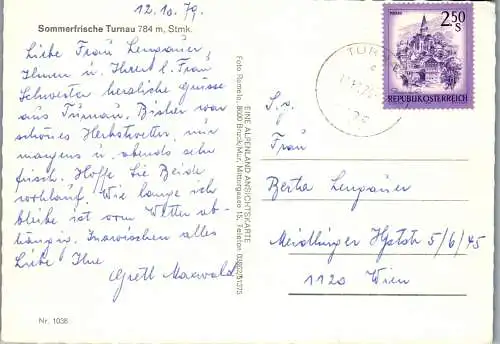 12.10.79.
Sommerfrische Turnau 784 m, Stmk.
Liebe Frau Lengauer,
Ihnen u. Ihrer l. Frau
Schwester herzliche Grüsse
aus Turnau. Bisher war
schönes Herbstwetter, nur
morgens u. abends sehr
frisch. Hoffe Sie Beide
wohlauf. Wie lange ich
bleibe ist vom Wetter ab-
hängig. Inzwischen alles
Liebe Ihre
Gretl Maxwald
Nr. 1036
EINE ALPENLAND ANSICHTSKARTE
8600 Bruck/Mur, Mittergasse 15, Telefon
2.50
S
REPUBLIK ÖSTERREICH
S. g.
Frau
Berta Lengauer
Meidlinger Hptstr 5/6/45
1120 Wien